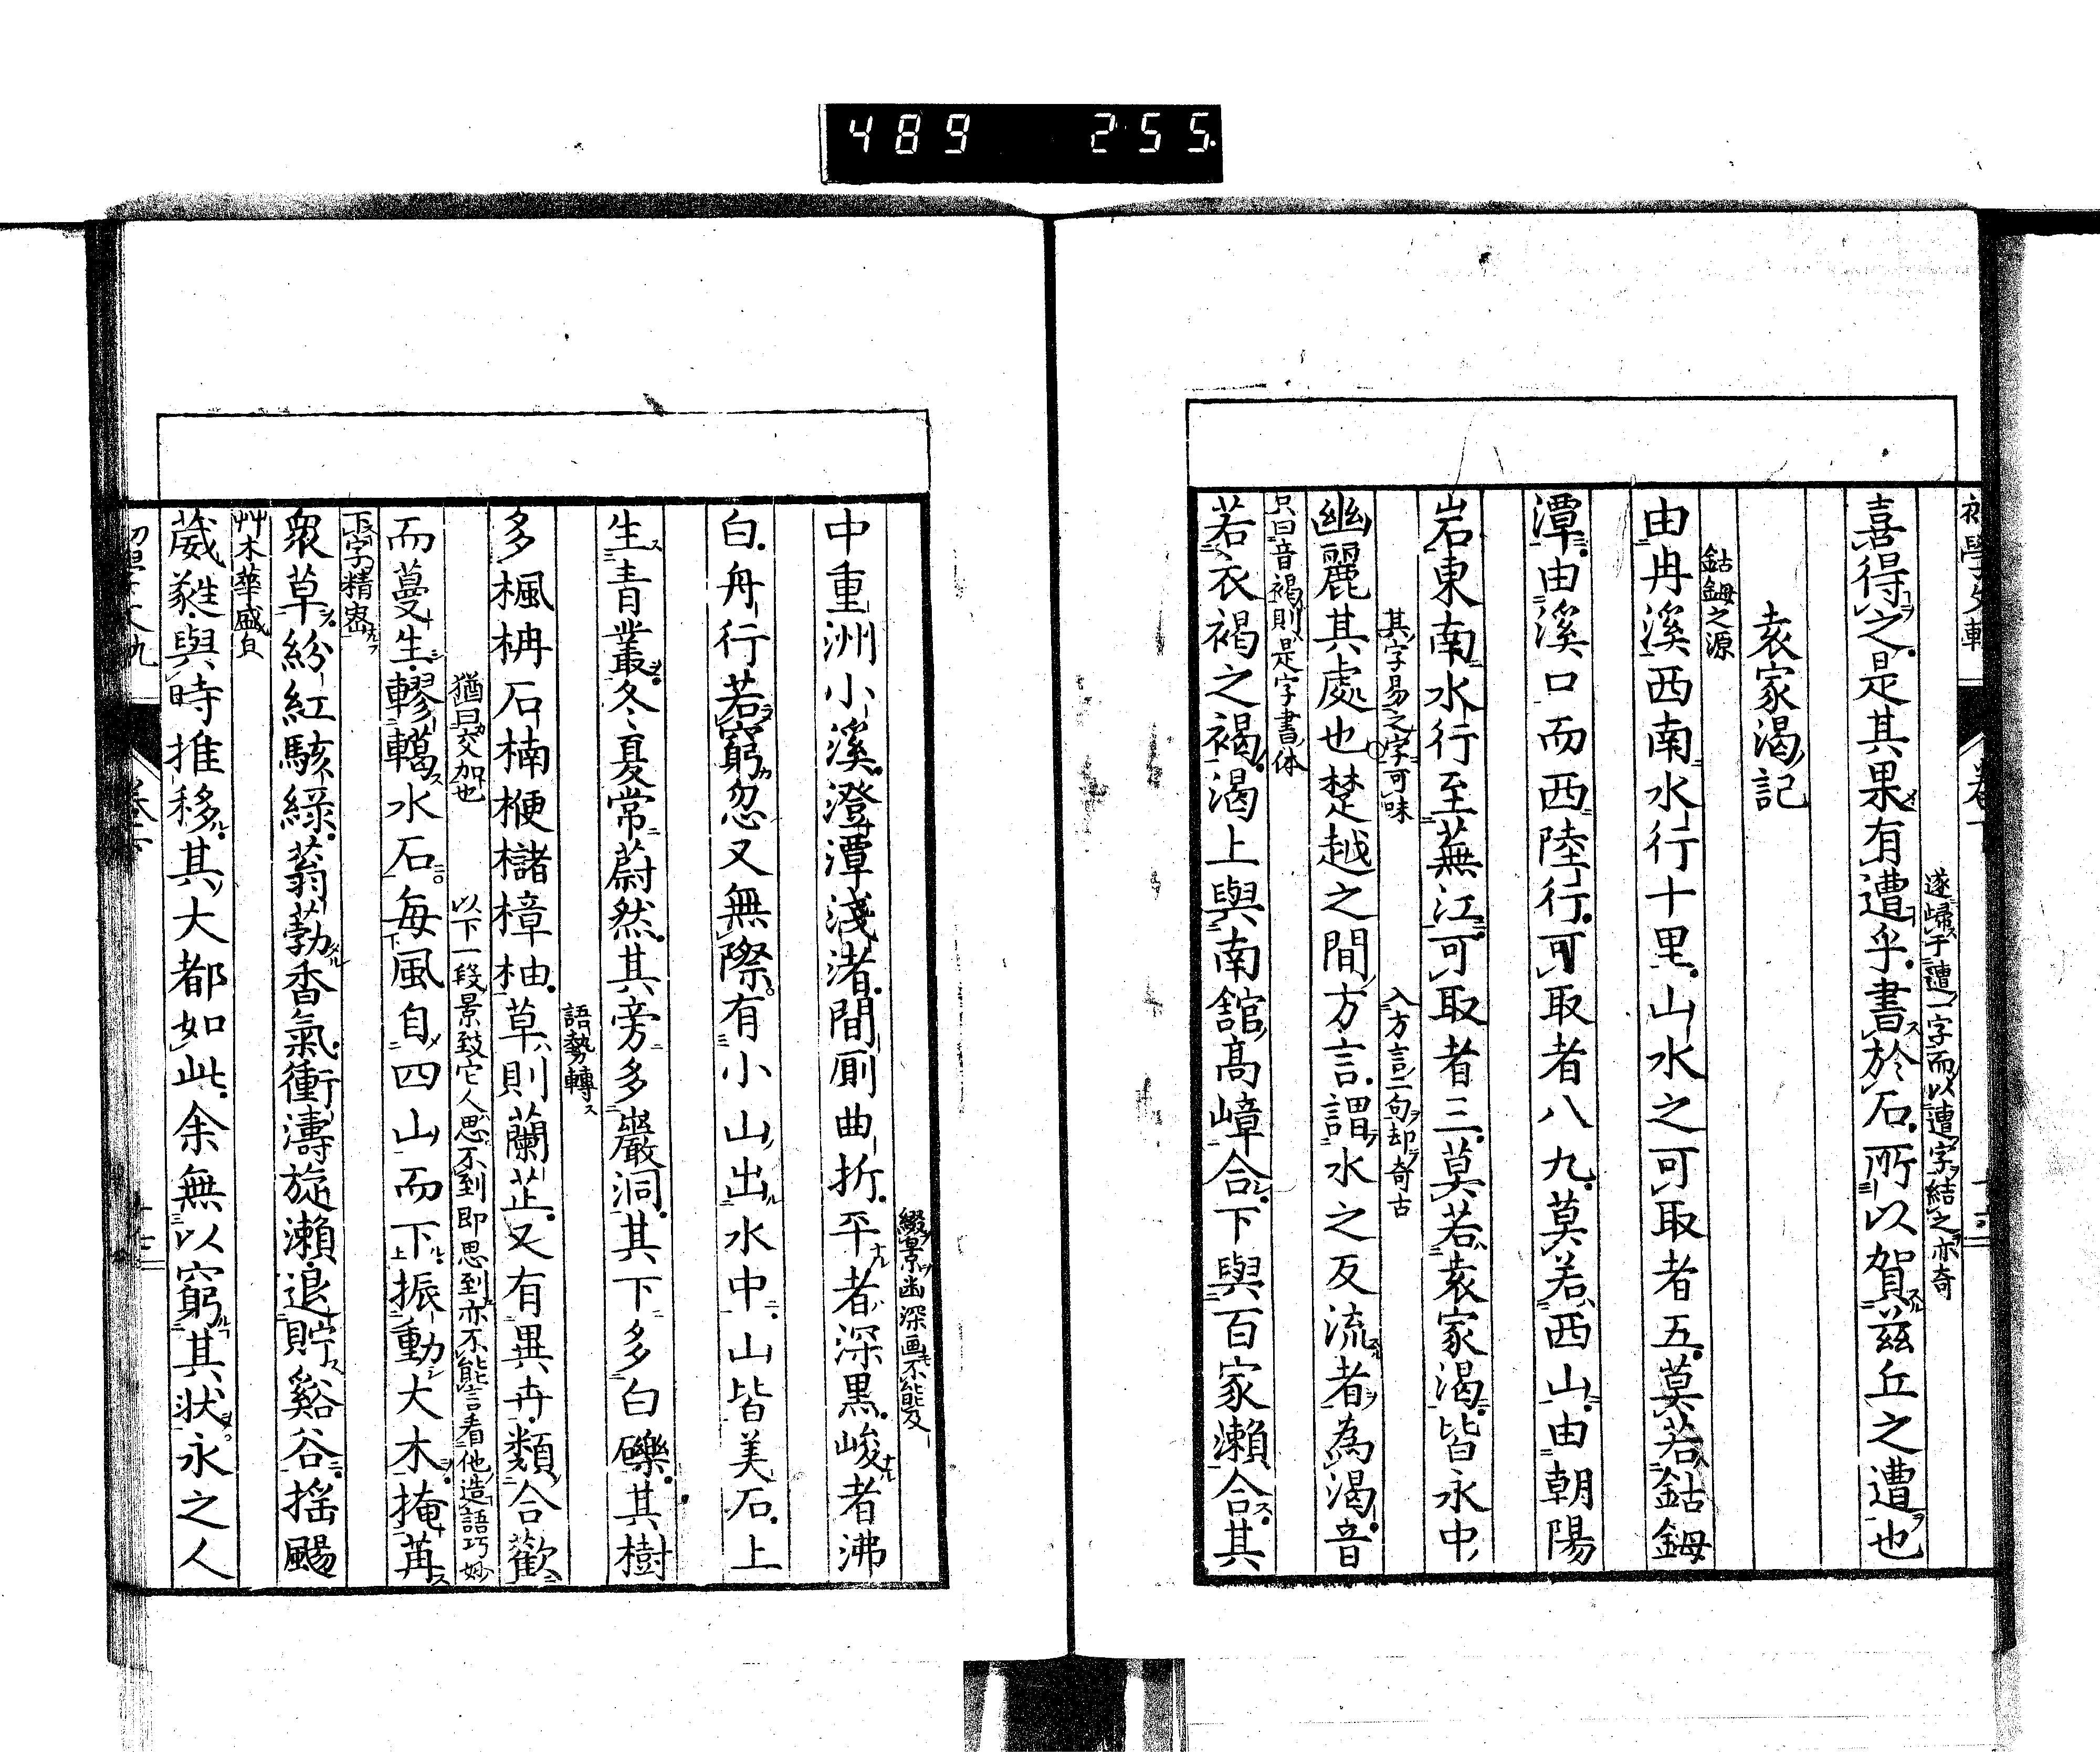 489 255
遂歸于遭一字而以遭字結之亦奇
喜得之是其果有遭乎書於石所以賀茲丘之遭也
袁家渴記
鈷鉧之源
由冉溪西南水行十里山水之可取者五莫若鈷鉧
潭由溪口而西陸行可取者八九莫若西山由朝陽
岩東南水行至蕪江可取者三莫若袁家渴皆永中
其字易之字可味 入方言二句却奇古
幽麗其處也楚越之間方言謂水之反流者為渴音
只曰音褐則是字書体
若衣褐之褐渴上與南舘高嶂合下與百家瀨合其
綴景幽深画不能及
中重洲小溪澄潭淺渚間厠曲折平者深黒峻者沸
白舟行若窮忽又無際有小山出水中山皆美石上
生青叢冬夏常蔚然其旁多巖洞其下多白礫其樹
語勢轉
多楓柟石楠楩櫧樟柚草則蘭芷又有異卉類合歡
猶曰交加也 以下一段景致它人思不到即思到亦不能言看他造語巧妙
而蔓生轇轕水石每風自四山而下振動大木掩苒
下字精密
衆草紛紅駭綠蓊葧香氣衝濤旋瀨退貯谿谷揺颺
艸木華盛皃
葳蕤與時推移其大都如此余無以窮其狀永之人